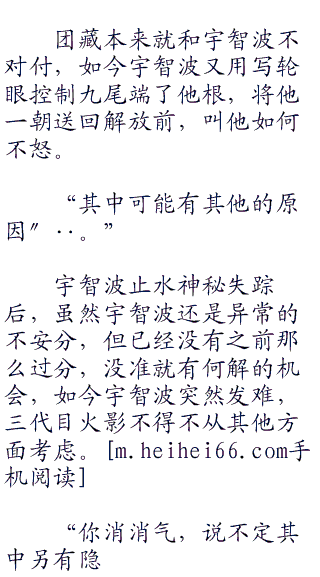 团藏本来就和宇智波不
对付，如今宇智波又用写轮
眼控制九尾端了他根，将他
一朝送回解放前，叫他如何
不怒。
“其中可能有其他的原
因〞‥。”
宇智波止水神秘失踪
后，虽然宇智波还是异常的
不安分，但已经没有之前那
么过分，没准就有何解的机
会，如今宇智波突然发难，
三代目火影不得不从其他方
面考虑。[m.heihei66.com手
机阅读]
“你消消气，说不定其
中另有隐